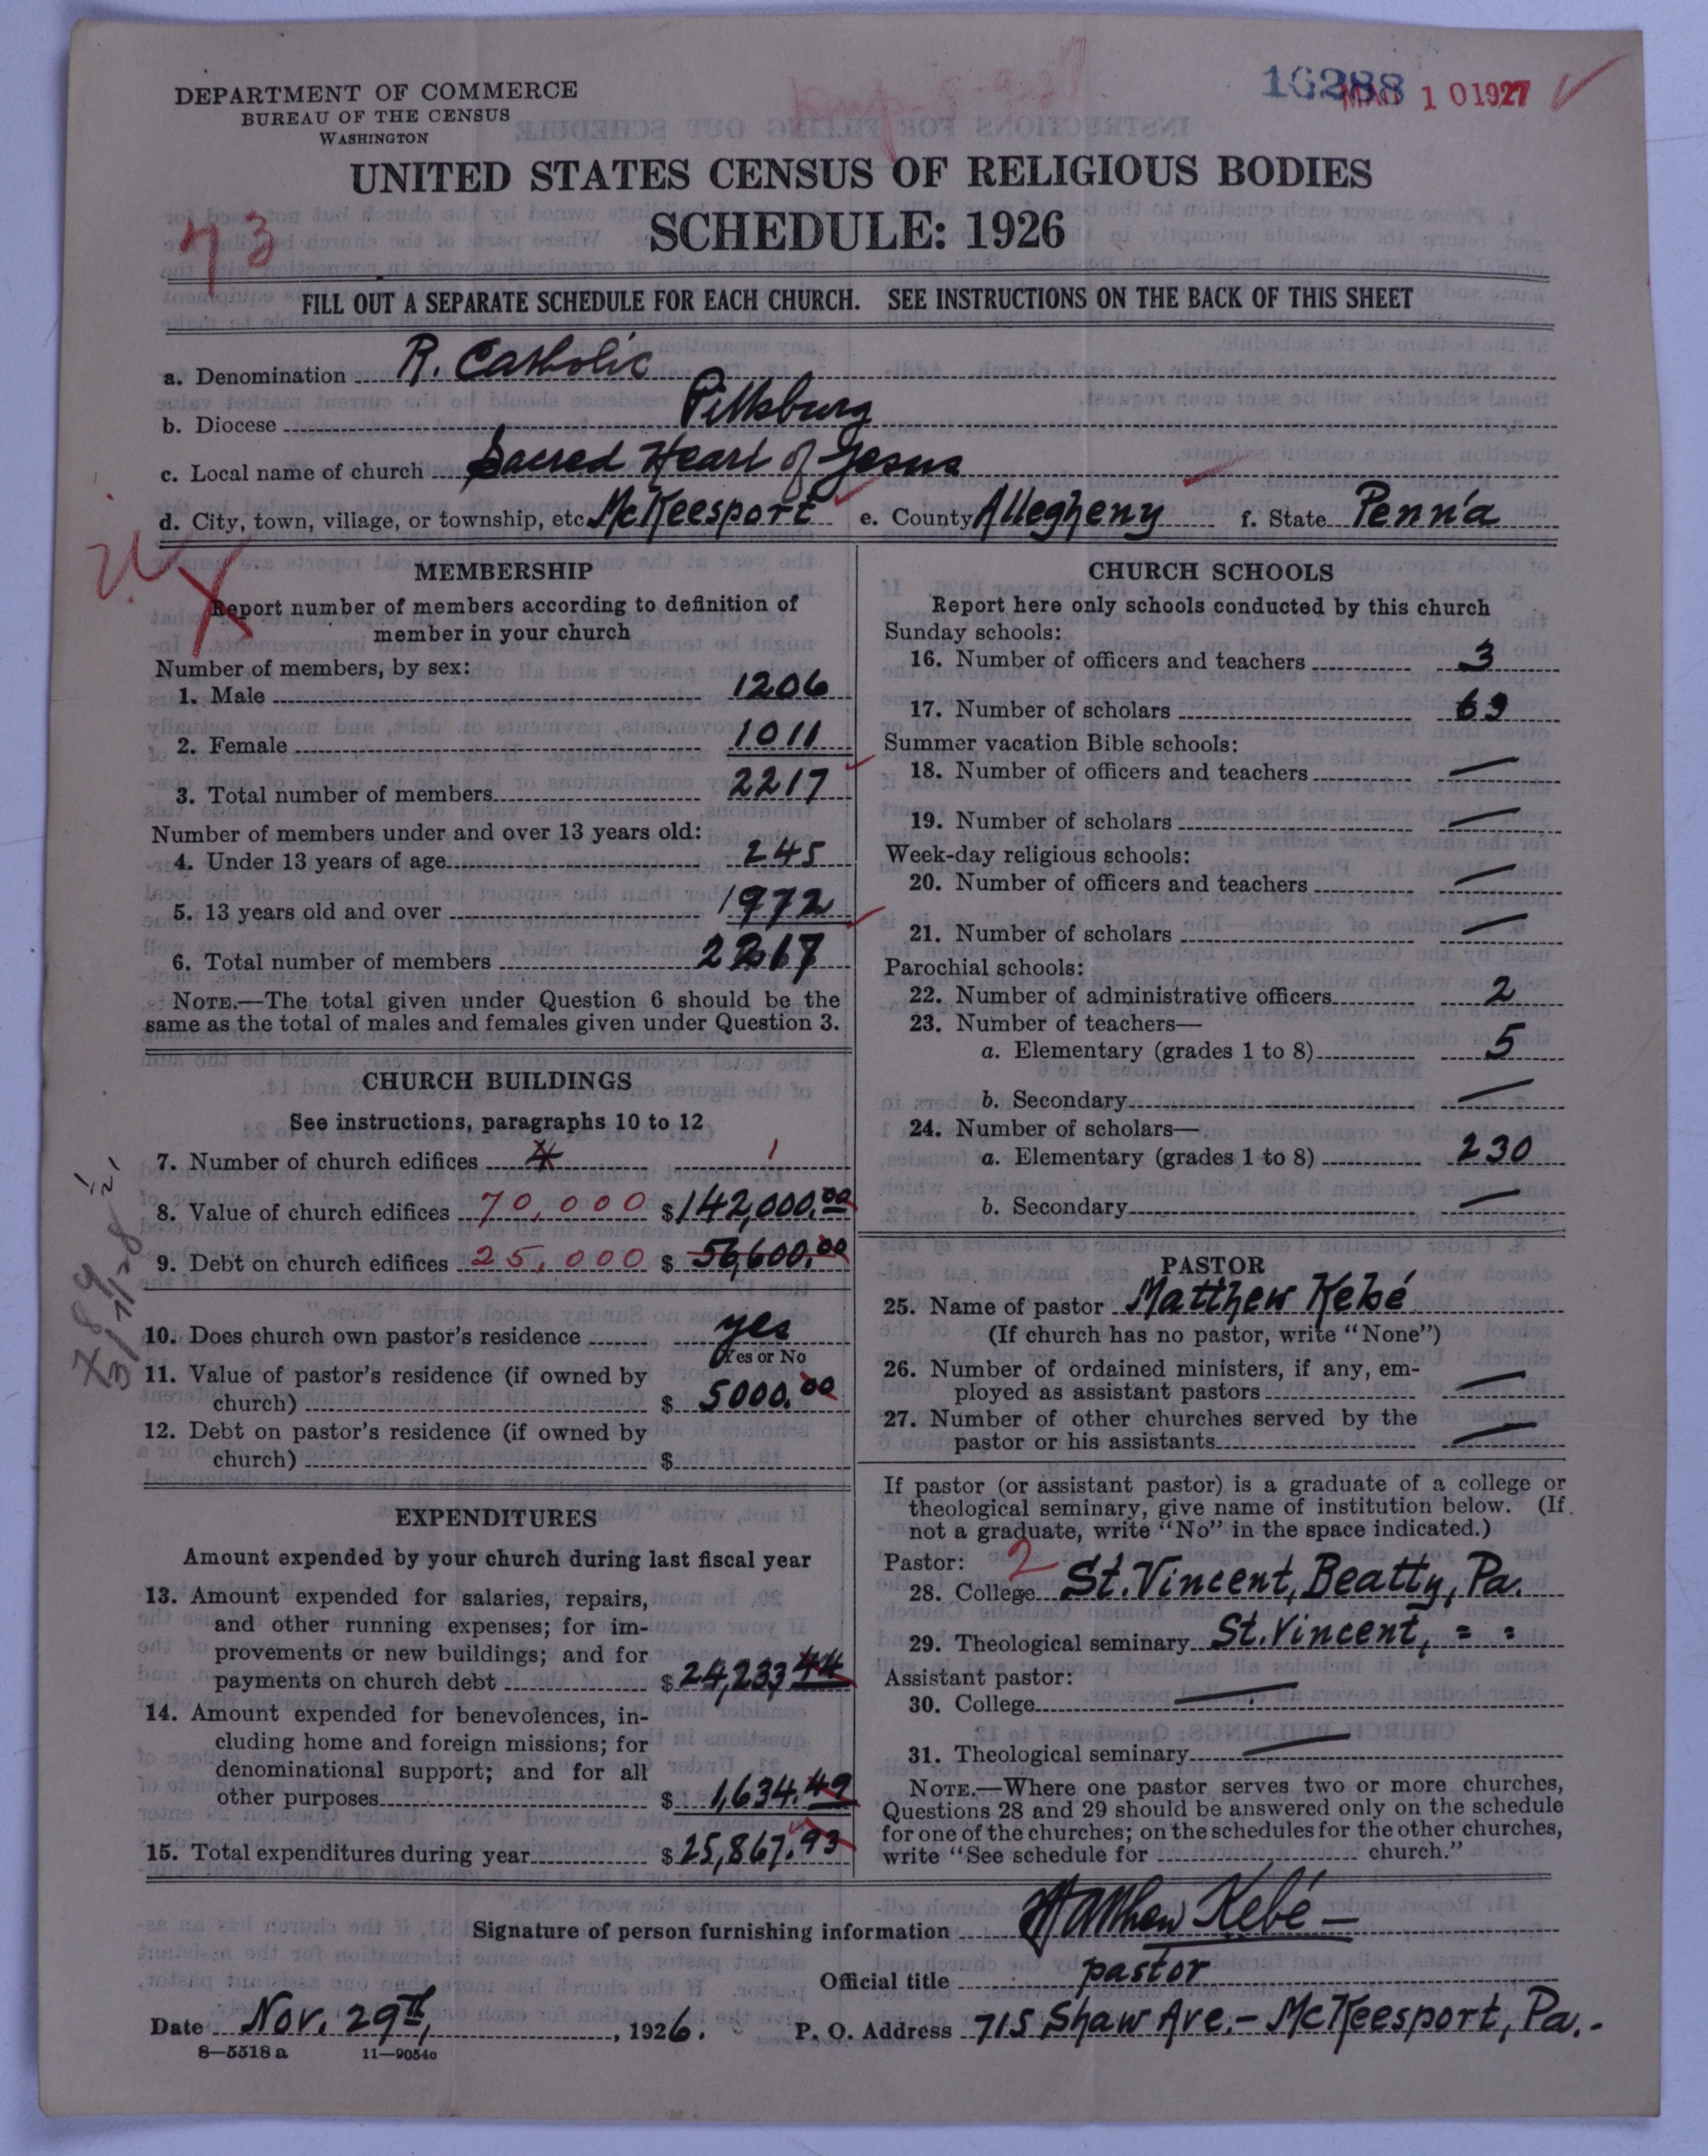 DEPARTMENT OF COMMERCE
BUREAU OF THE CENSUS
WASHINGTON
16288
10 1927
UNITED STATES CENSUS OF RELIGIOUS BODIES
SCHEDULE: 1926
73
FILL OUT A SEPARATE SCHEDULE FOR EACH CHURCH. SEE INSTRUCTIONS ON THE BACK OF THIS SHEET
a. Denomination R. Catholic
b. Diocese Pittsburg
c. Local name of church Sacred Heart of Jesus
d. City, town, village, or township, etc. McKeesport e. County Allegheny f. State Penn'a
MEMBERSHIP
Report number of members according to definition of
member in your church
Number of members, by sex:
1. Male 1206
2. Female 1011
3. Total number of members 2217
Number of members under and over 13 years old:
4. Under 13 years of age 245
5. 13 years old and over 1972
6. Total number of members 2217
NOTE.—The total given under Question 6 should be the
same as the total of males and females given under Question 3.
CHURCH BUILDINGS
See instructions, paragraphs 10 to 12
7. Number of church edifices 4 1
8. Value of church edifices 70,000 $142,000.00
9. Debt on church edifices 25,000 $56,600.00
10. Does church own pastor's residence yes
Yes or No
11. Value of pastor's residence (if owned by
church) $5000.00
12. Debt on pastor's residence (if owned by
church) $
EXPENDITURES
Amount expended by your church during last fiscal year
13. Amount expended for salaries, repairs,
and other running expenses; for im-
provements or new buildings; and for
payments on church debt $24,233 44
14. Amount expended for benevolences, in-
cluding home and foreign missions; for
denominational support; and for all
other purposes $1,634.49
15. Total expenditures during year $25,867.93
CHURCH SCHOOLS
Report here only schools conducted by this church
Sunday schools:
16. Number of officers and teachers 3
17. Number of scholars 69
Summer vacation Bible schools:
18. Number of officers and teachers —
19. Number of scholars —
Week-day religious schools:
20. Number of officers and teachers —
21. Number of scholars —
Parochial schools:
22. Number of administrative officers 2
23. Number of teachers—
a. Elementary (grades 1 to 8) 5
b. Secondary —
24. Number of scholars—
a. Elementary (grades 1 to 8) 230
b. Secondary —
PASTOR
25. Name of pastor Matthew Kebé
(If church has no pastor, write "None")
26. Number of ordained ministers, if any, em-
ployed as assistant pastors —
27. Number of other churches served by the
pastor or his assistants —
If pastor (or assistant pastor) is a graduate of a college or
theological seminary, give name of institution below. (If
not a graduate, write "No" in the space indicated.)
Pastor: 2
28. College St. Vincent, Beatty, Pa.
29. Theological seminary St. Vincent, = =
Assistant pastor:
30. College —
31. Theological seminary —
NOTE.—Where one pastor serves two or more churches,
Questions 28 and 29 should be answered only on the schedule
for one of the churches; on the schedules for the other churches,
write "See schedule for church."
Signature of person furnishing information Matthew Kebé —
Official title pastor
Date Nov. 29th, 1926. P. O. Address 715 Shaw Ave. - McKeesport, Pa. -
8—5518 a 11—9054c